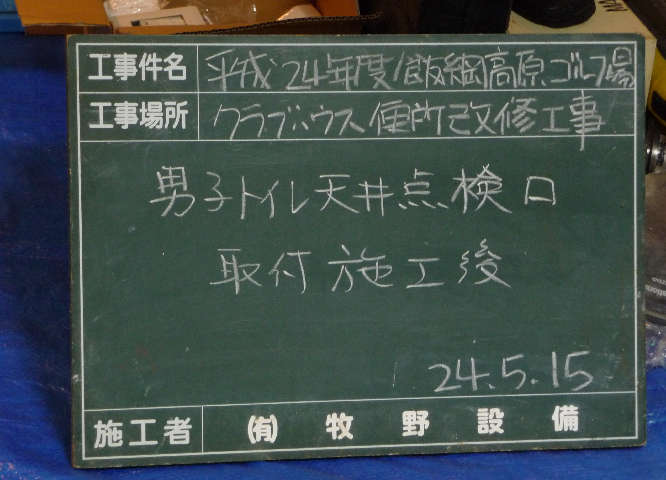 工事件名 平成24年度飯綱高原ゴルフ場
工事場所 クラブハウス便所改修工事
男子トイレ天井点検口
取付施工後
24.5.15
施工者 ㈲ 牧野設備